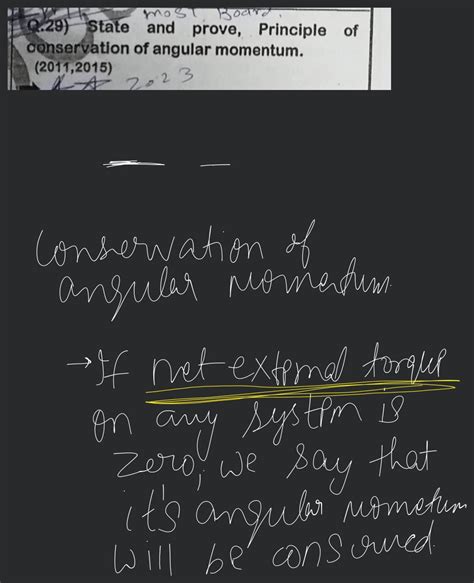 most Board.
Q.29) State and prove, Principle of
conservation of angular momentum.
(2011,2015)
2023
Conservation of
angular momentum
→ If net external torque
on any system is
zero, we say that
it's angular momentum
will be conserved.